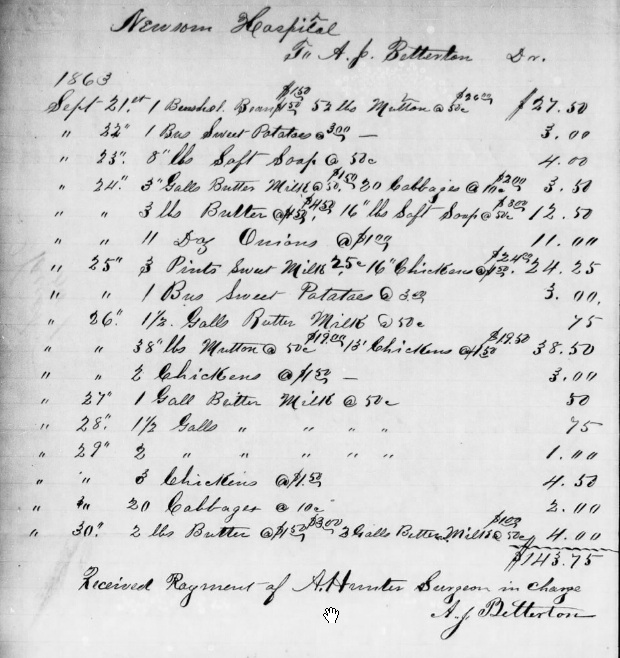 Newsom Hospital
To A. J. Betterton Dr.
1863
Sept 21.st 1 Bushel Beans $1.50 52 lbs Mutton @ 50c $26.00 $27.50
" 22" 1 Bus Sweet Potatoes @ 3.00 — 3.00
" 23" 8" lbs Soft Soap @ 50c 4.00
" 24" 3" Galls Butter Milk @ 50c $1.50 20 Cabbages @ 10c $2.00 3.50
" " 3 lbs Butter @ $1.50 $4.50 16" lbs Soft Soap @ 50c $8.00 12.50
" " 11 Doz Onions @ $1.00 11.00
" 25" 3 Pints Sweet Milk 25c 16" Chickens @ $1.50 $24.00 24.25
" " 1 Bus Sweet Potatoes @ 3.00 3.00
" 26" 1 1/2 Galls Butter Milk @ 50c 75
" " 38" lbs Mutton @ 50c $19.00 13" Chickens @ $1.50 $19.50 38.50
" " 2 Chickens @ $1.50 — 3.00
" 27" 1 Gall Butter Milk @ 50c 50
" 28" 1 1/2 Galls " " " " 75
" 29" 2 " " " " " 1.00
" " 3 Chickens @ $1.50 4.50
" " 20 Cabbages @ 10c 2.00
" 30" 2 lbs Butter @ $1.50 $3.00 2 Galls Butter Milk @ 50c $1.00 4.00
$143.75
Received Payment of A. Hunter Surgeon in charge
A J Betterton